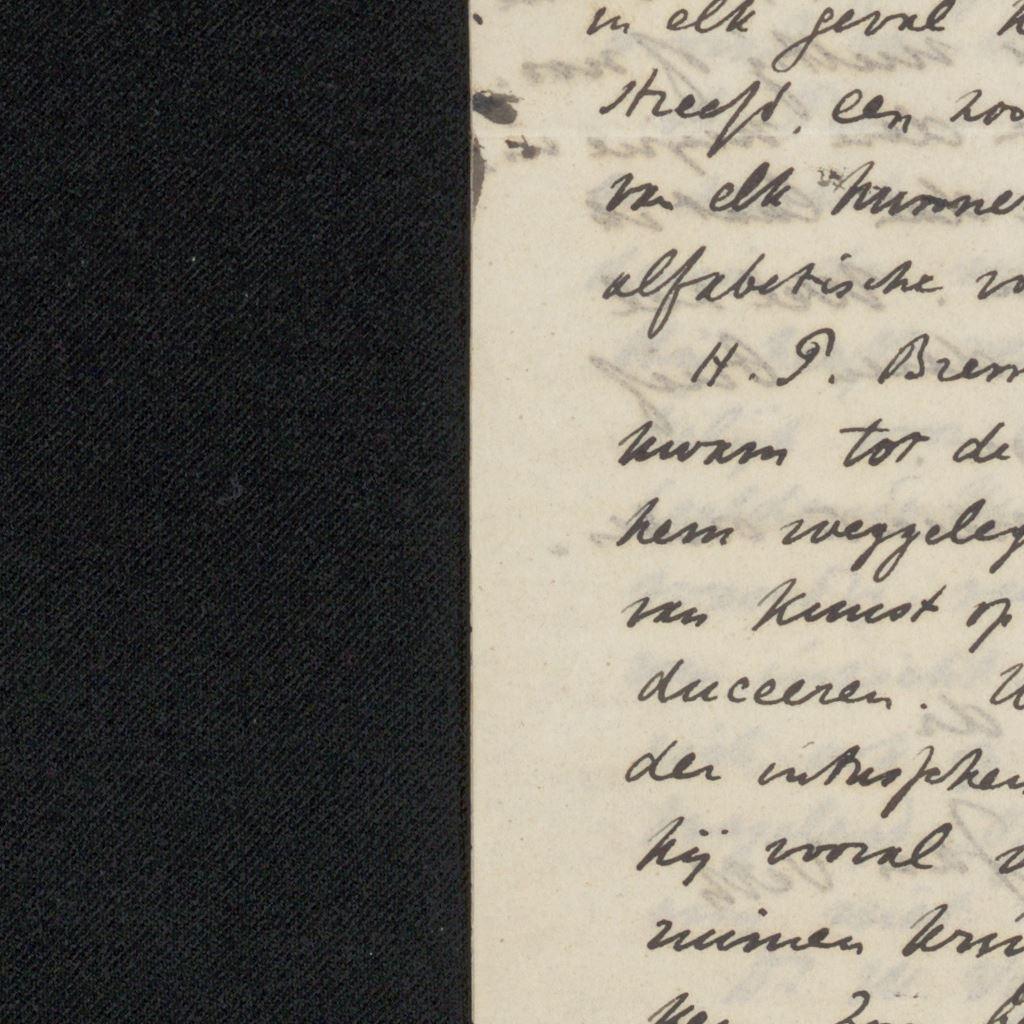 in elk geval
streefd, een
van elk hunner
alfabetische
H. P. Brem
kwam tot de
hem weggeleg
van kunst op
duceeren.
der
hij vooral
ruimen